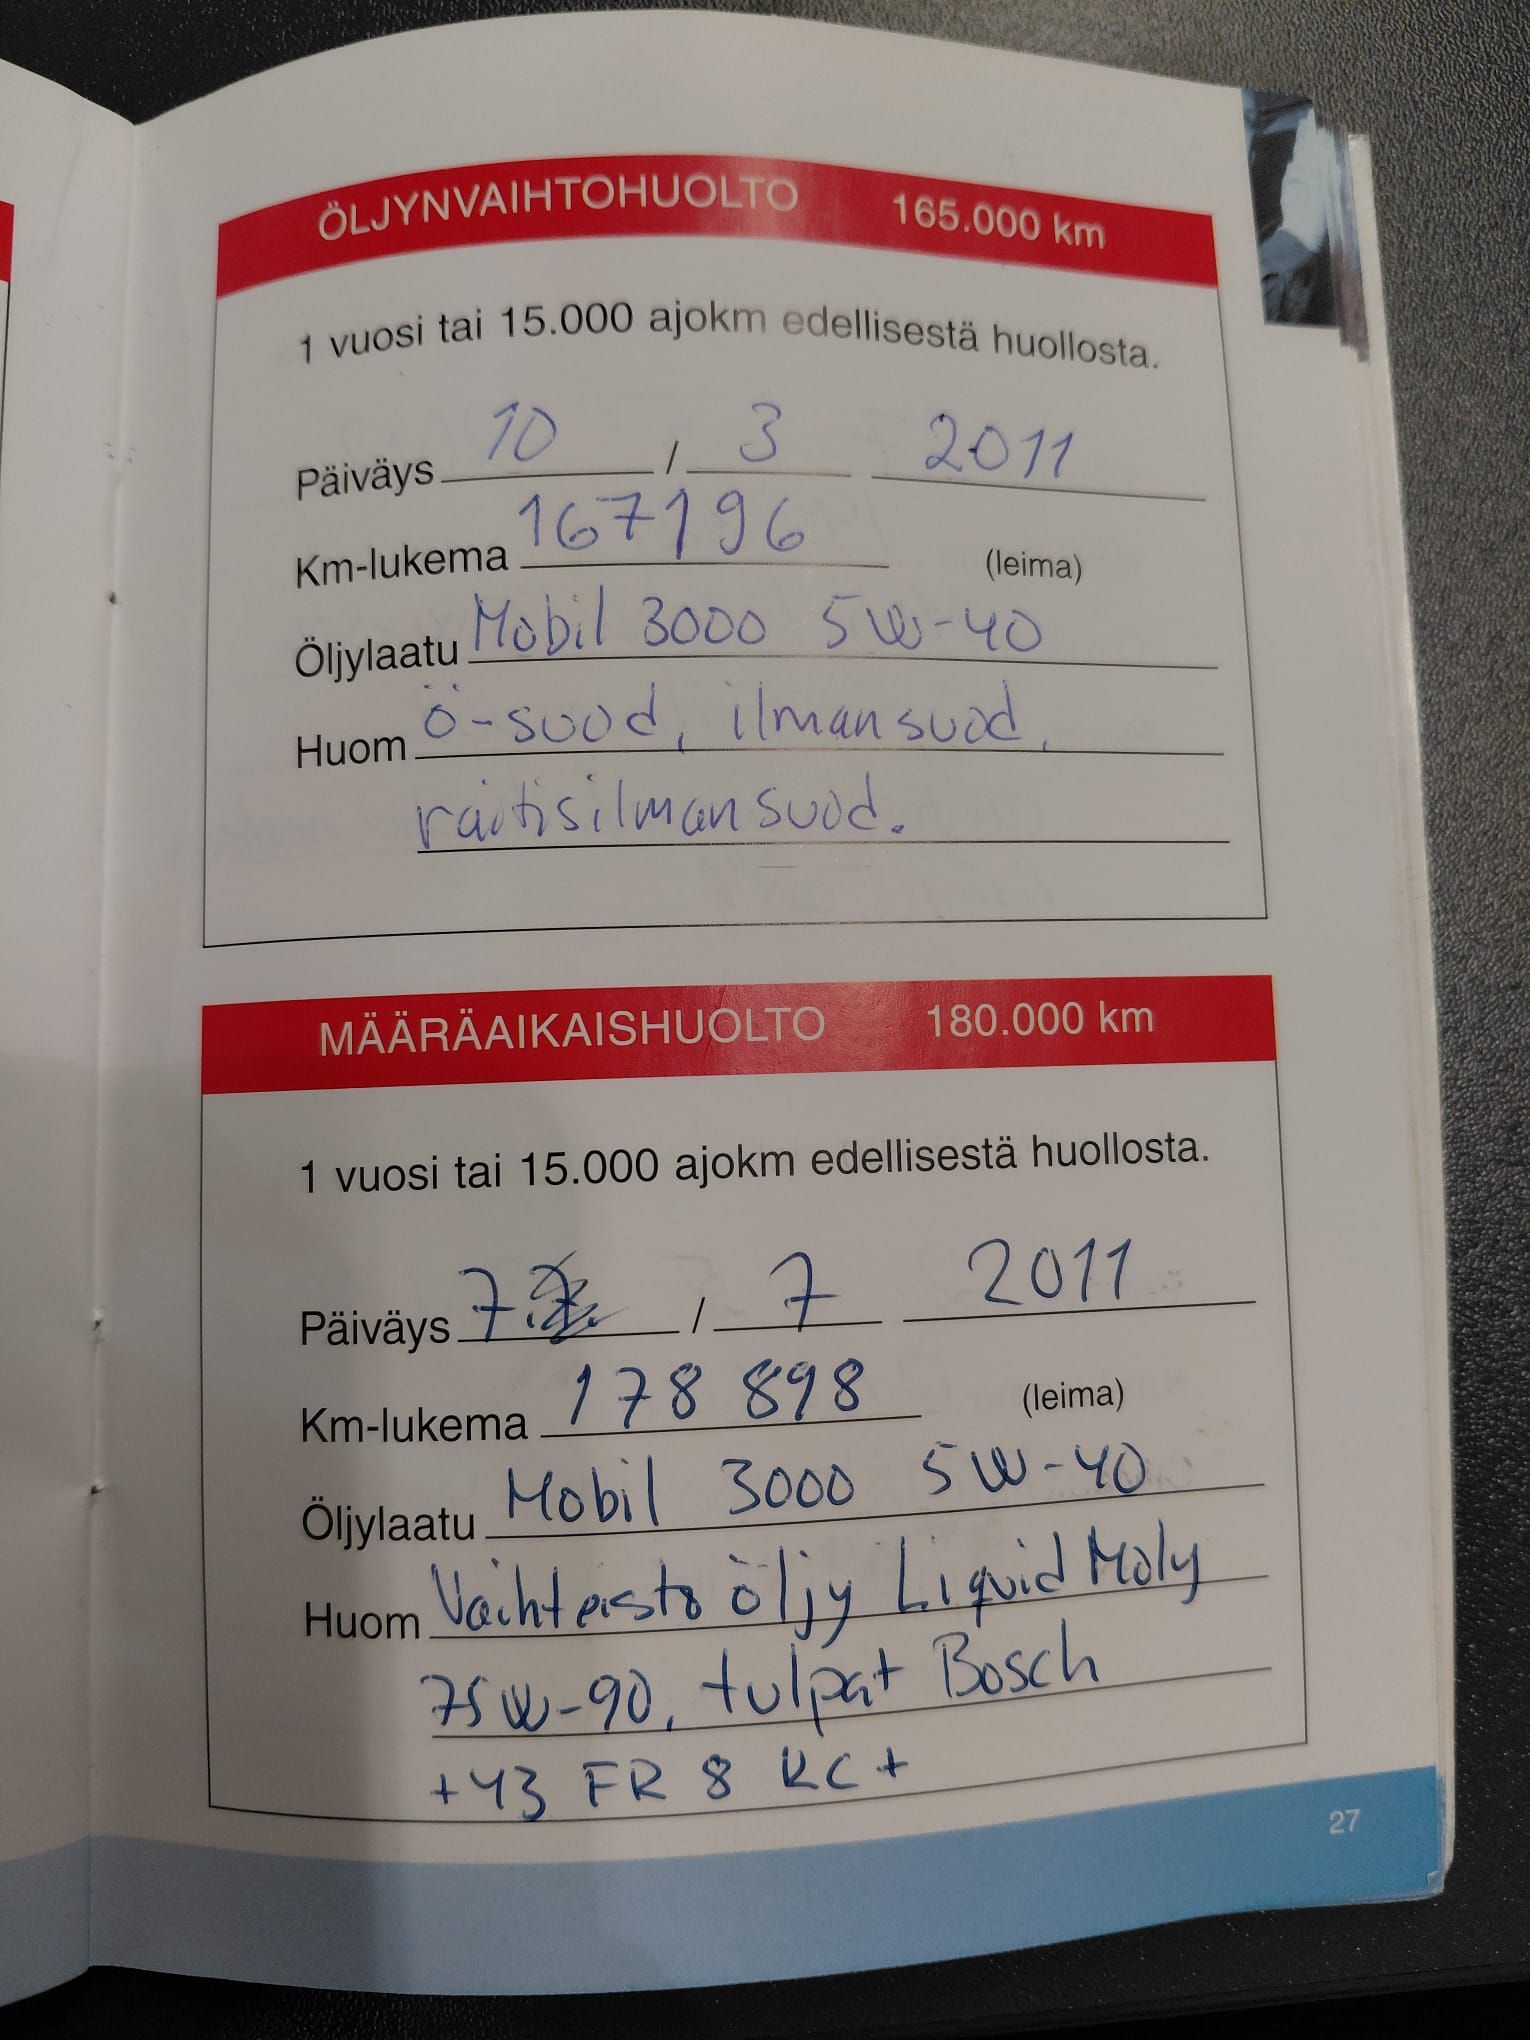 ÖLJYNVAIHTOHUOLTO 165.000 km
1 vuosi tai 15.000 ajokm edellisestä huollosta.
Päiväys 10 / 3 2011
Km-lukema 167196 (leima)
Öljylaatu Mobil 3000 5W-40
Huom Ö-suod, ilmansuod,
raitisilmansuod.
MÄÄRÄAIKAISHUOLTO 180.000 km
1 vuosi tai 15.000 ajokm edellisestä huollosta.
Päiväys 7. / 7 2011
Km-lukema 178 898 (leima)
Öljylaatu Mobil 3000 5W-40
Huom Vaihteisto öljy Liquid Moly
75W-90, tulpat Bosch
+43 FR 8 KC+
27